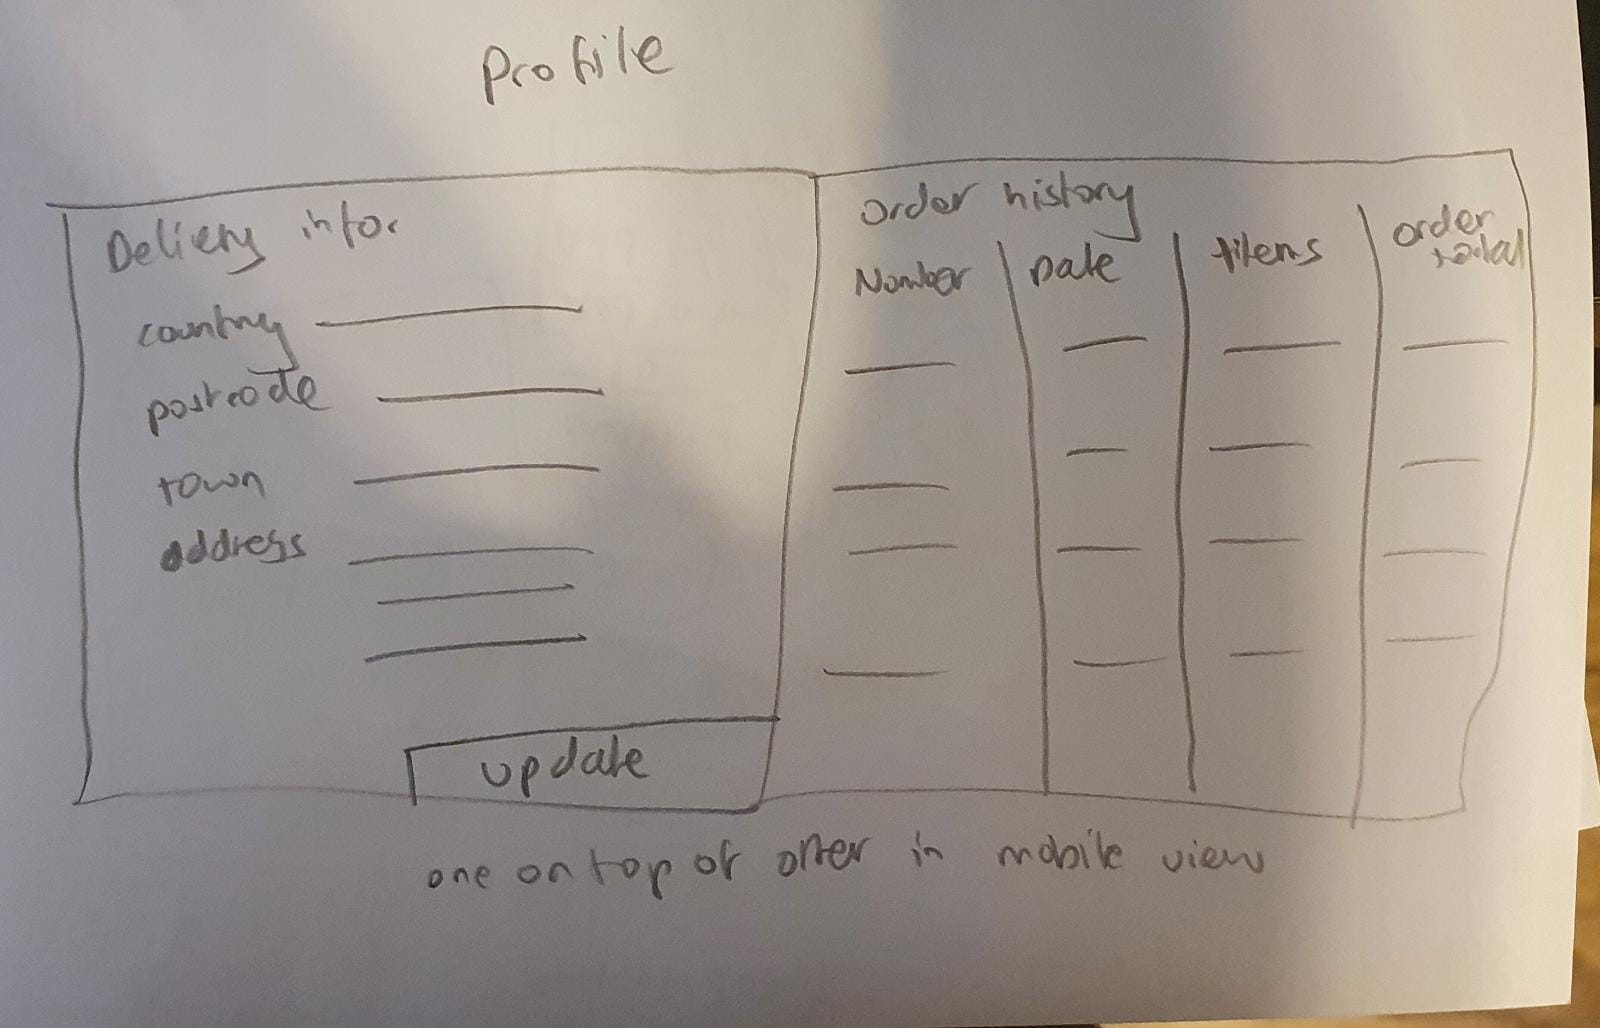 Profile
Delivery info.
country
postcode
town
address
update
Order history
Number
Date
items
order
total
one on top of other in mobile view